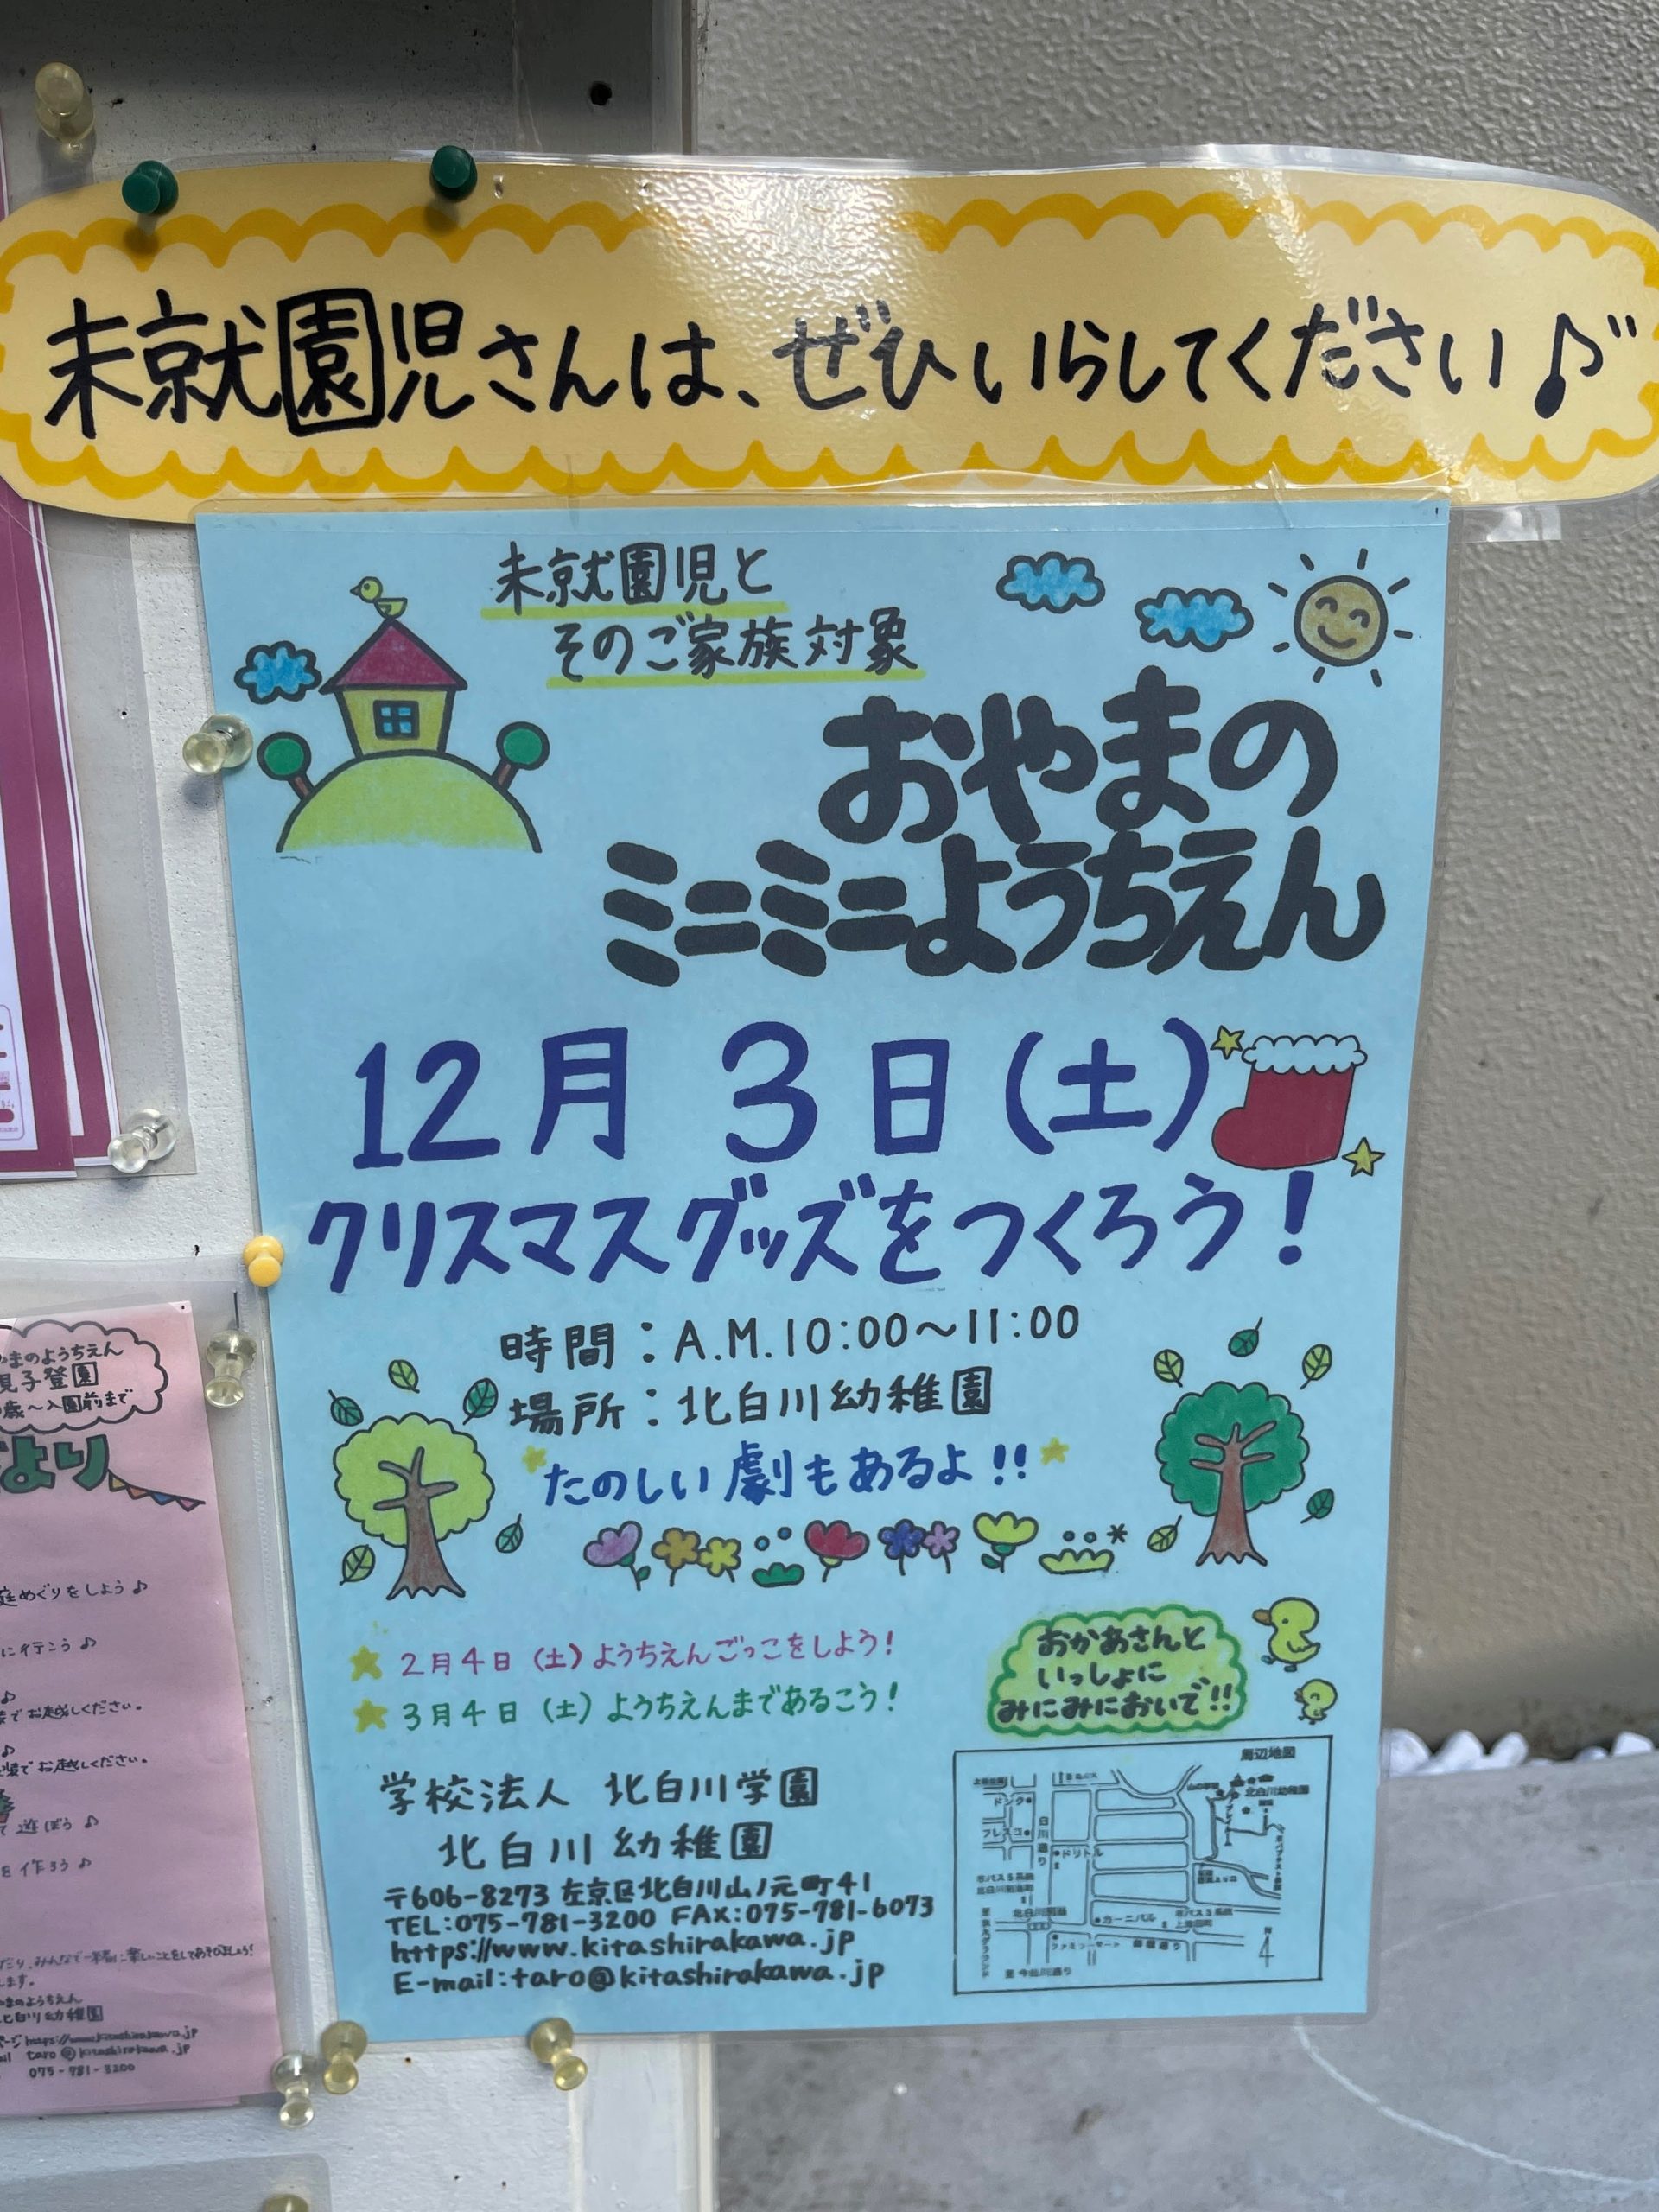 未就園児さんは、ぜひいらしてください♪
未就園児と
そのご家族対象
おやまの
ミニミニようちえん
12月3日(土)
クリスマスグッズをつくろう!
時間:A.M.10:00~11:00
場所:北白川幼稚園
たのしい劇もあるよ!!
2月4日(土)ようちえんごっこをしよう!
3月4日(土)ようちえんまであるこう!
おかあさんと
いっしょに
みにみにおいで!!
学校法人 北白川学園
北白川幼稚園
〒606-8273 左京区北白川山ノ元町41
TEL:075-781-3200 FAX:075-781-6073
https://www.kitashirakawa.jp
E-mail:taro@kitashirakawa.jp
周辺地図
北白川幼稚園
ドンク
フレスコ
白川通り
ドリトル
カーニバル
ファミリーマート
至今出川通り
N
まのようちえん
子登園
歳~入園前まで
より
めぐりをしよう♪
に行こう♪
でお越しください。
でお越しください。
遊ぼう♪
作ろう♪
ようちえん
北白川幼稚園
https://www.kitashirakawa.jp
taro@kitashirakawa.jp
075-781-3200